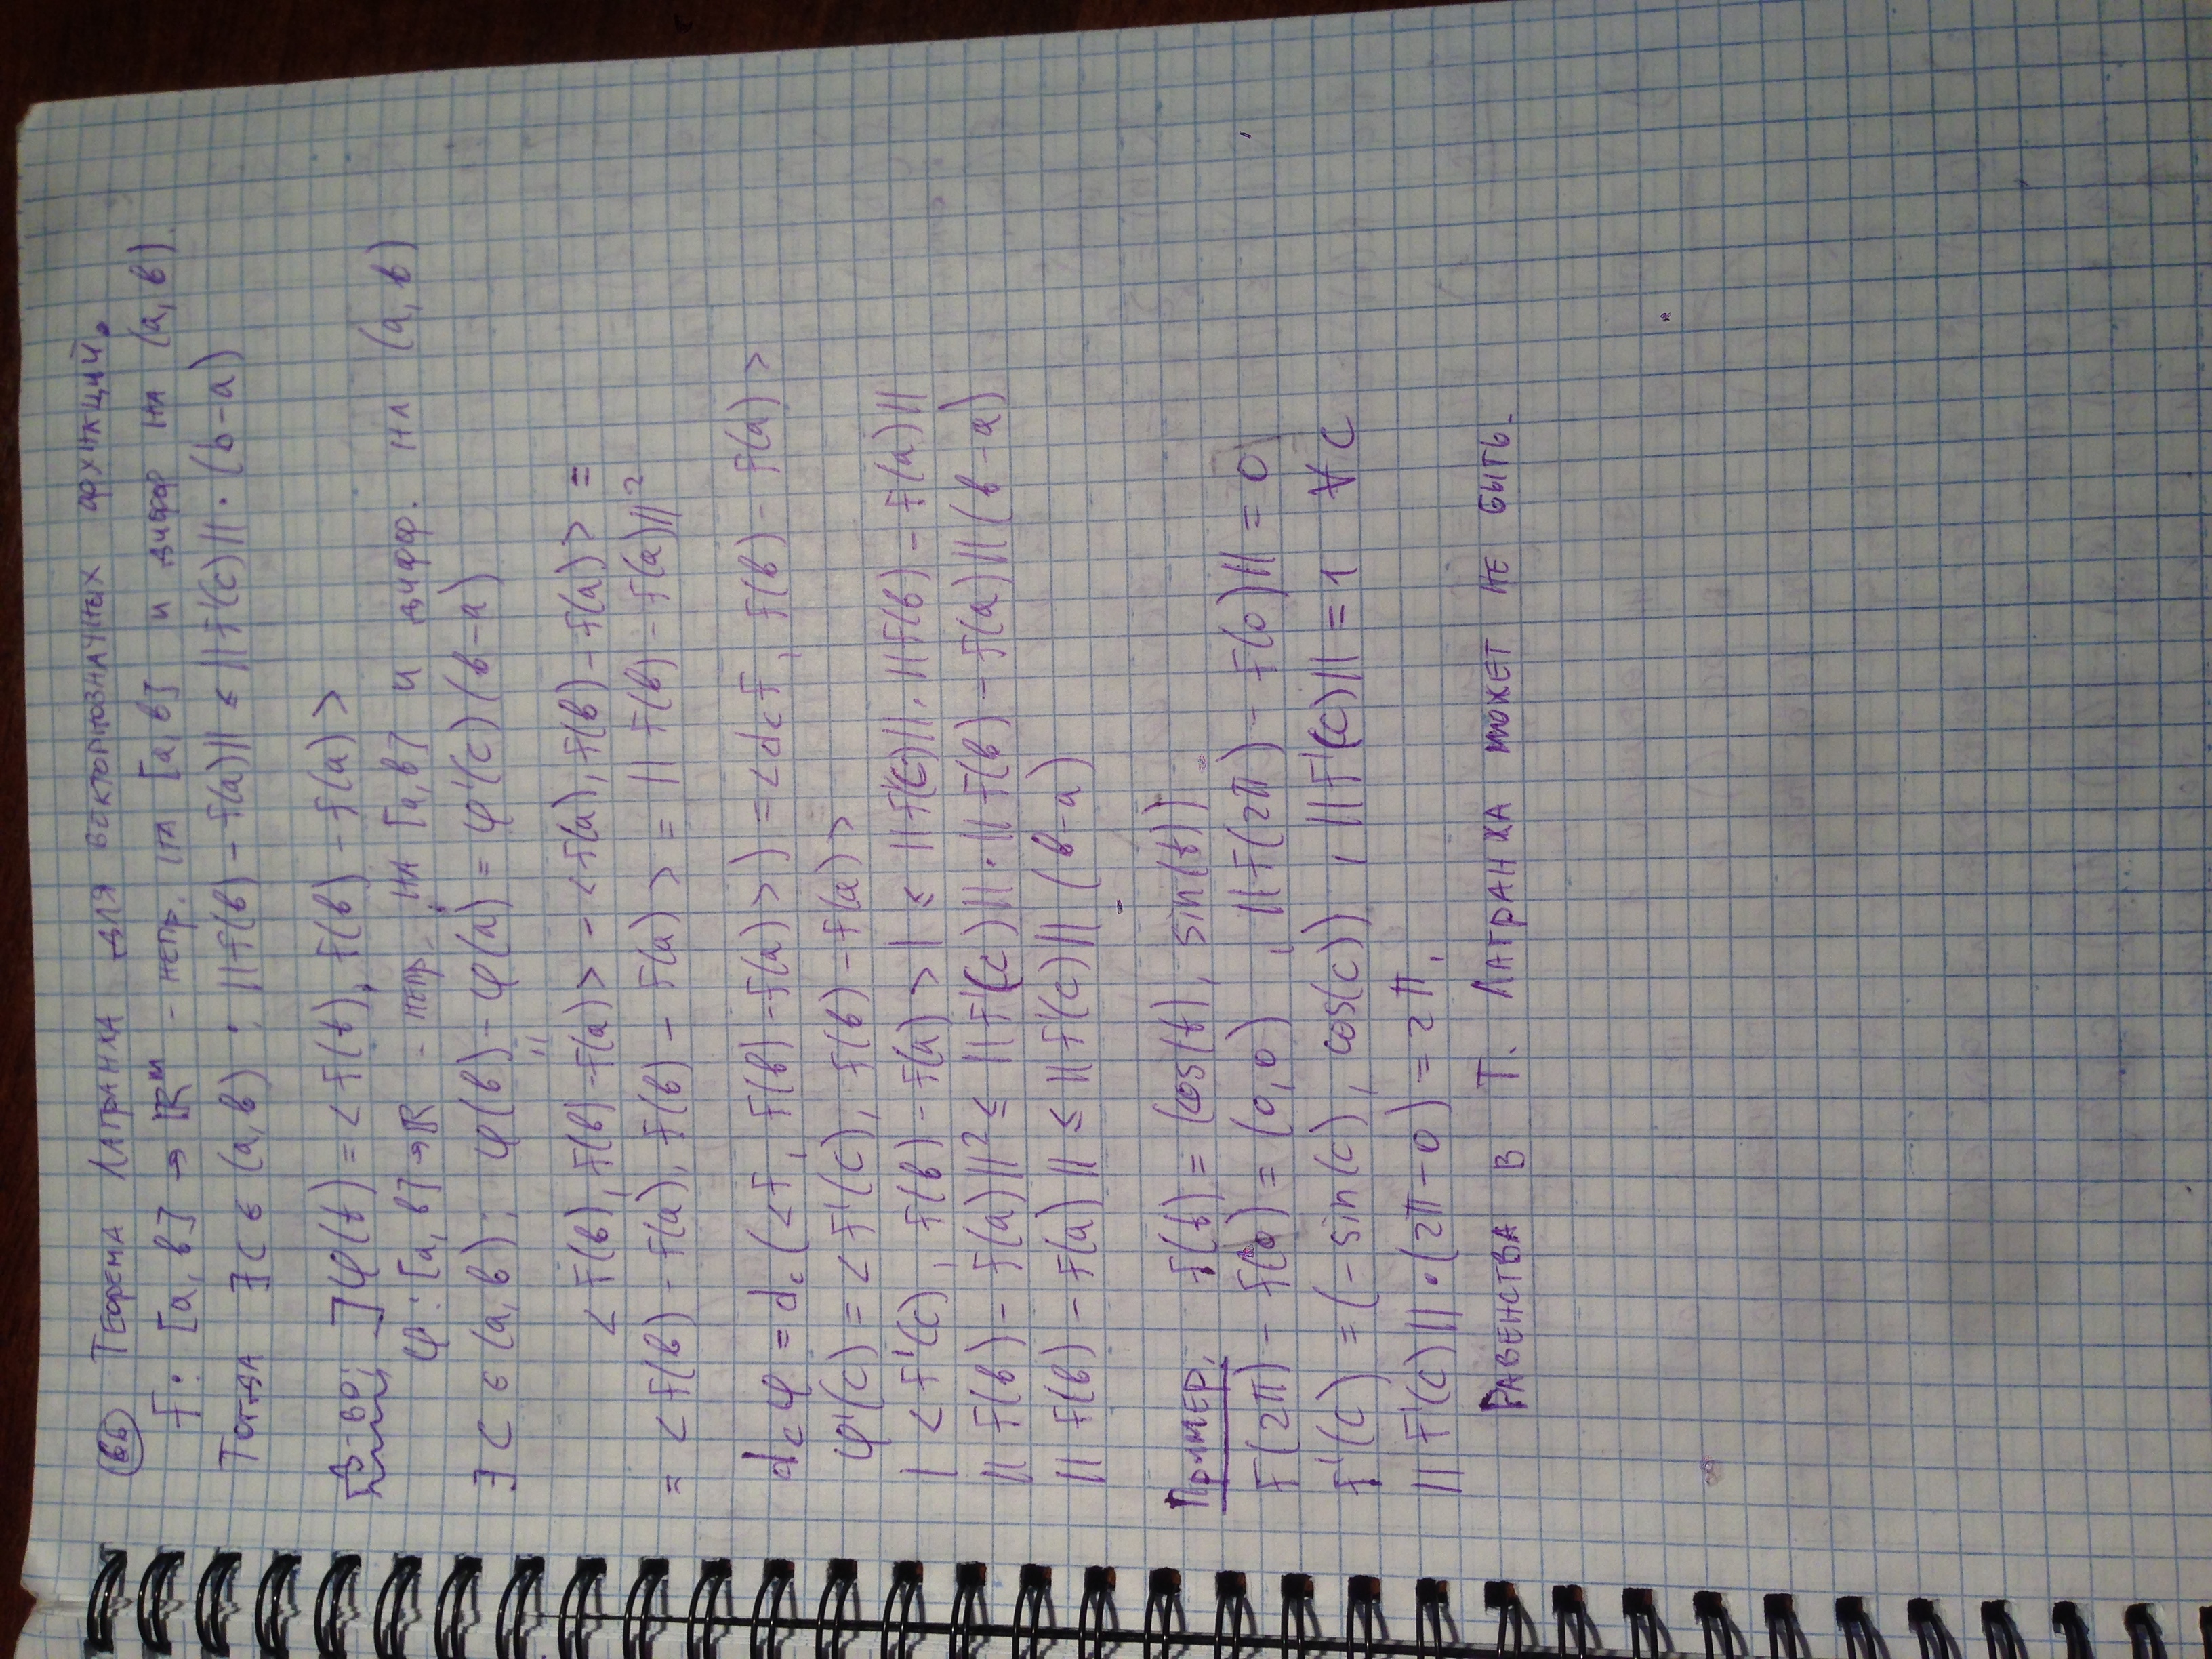 66 Теорема Лагранжа для векторнозначных функций.
f: [a, b] → ℝᵐ - непр. на [a, b] и дифф на (a, b).
Тогда ∃ c ∈ (a, b) : ||f(b) - f(a)|| ≤ ||f'(c)|| · (b-a)
Д-во: ] φ(t) = <f(t), f(b) - f(a)>
φ: [a, b] → ℝ - непр. на [a, b] и дифф. на (a, b)
∃ c ∈ (a, b): φ(b) - φ(a) = φ'(c) (b-a)
"
<f(b), f(b) - f(a)> - <f(a), f(b) - f(a)> =
= <f(b) - f(a), f(b) - f(a)> = ||f(b) - f(a)||²
d_c φ = d_c (<f, f(b) - f(a)>) = <d_c f, f(b) - f(a)>
φ'(c) = <f'(c), f(b) - f(a)>
|<f'(c), f(b) - f(a)>| ≤ ||f'(c)|| · ||f(b) - f(a)||
||f(b) - f(a)||² ≤ ||f'(c)|| · ||f(b) - f(a)|| (b-a)
||f(b) - f(a)|| ≤ ||f'(c)|| (b-a)
Пример. f(t) = (cos(t), sin(t))
f(2π) - f(0) = (0,0) , ||f(2π) - f(0)|| = 0
f'(c) = (-sin(c), cos(c)) , ||f'(c)|| = 1 ∀ c
||f'(c)|| · (2π-0) = 2π.
Равенства в Т. Лагранжа может не быть.